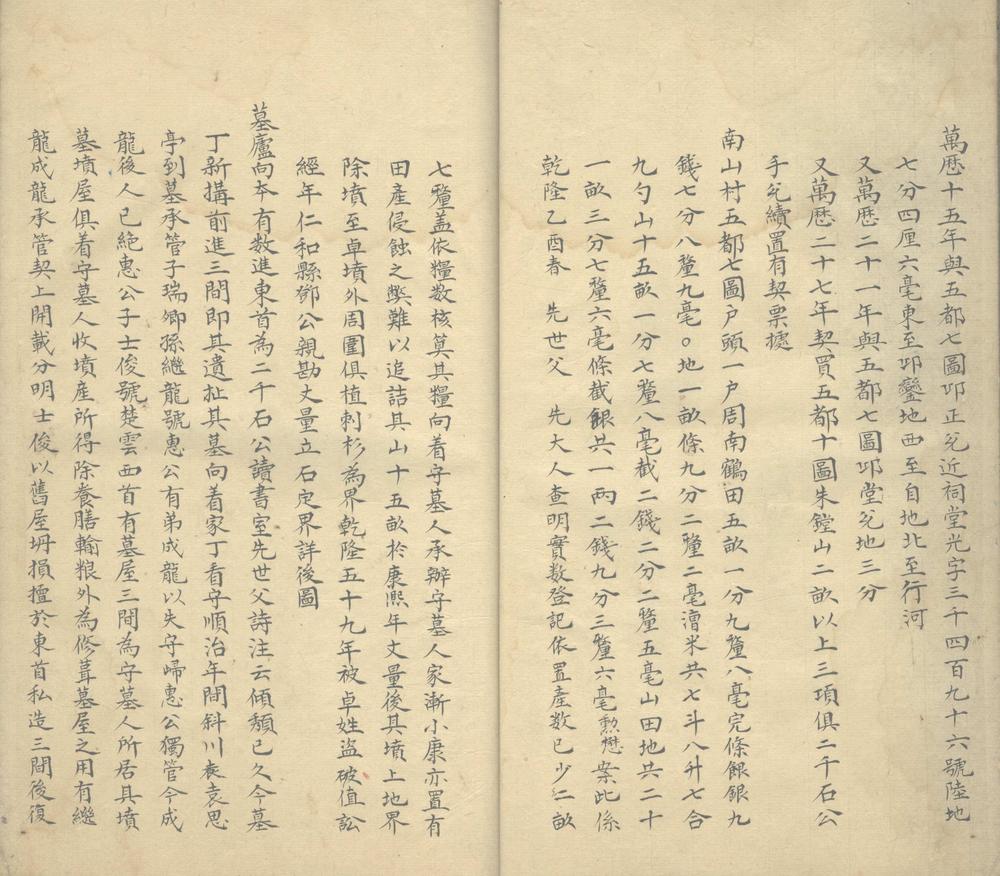 萬歷十五年與五都七圖邛正兌近祠堂光字三千四百九十六號陸地
七分四厘六毫東至邛鑾地西至自地北至行河
又萬歷二十一年與五都七圖邛堂兌地三分
又萬歷二十七年契買五都十圖朱鏜山二畝以上三項俱二千石公
手兌續置有契票據
南山村五都七圖戶頭一戶周南鶴田五畝一分九釐八毫完條銀銀九
錢七分八釐九毫○地一畝條九分二釐二毫漕米共七斗八升七合
九勺山十五畝一分七釐八毫截二錢二分二釐五毫山田地共二十
一畝三分七釐六毫條截銀共一兩二錢九分三釐六毫勲懋案此係
乾隆乙酉春 先世父 先大人查明實数登記依置產数已少仁畝
七釐盖依糧数核算其糧向着守墓人承辦守墓人家漸小康亦置有
田產侵蝕之弊難以追詰其山十五畝於康熙年丈量後其墳上地界
除墳至卓墳外周圍俱植刺杉為界乾隆五十九年被卓姓盜破值訟
經年仁和縣鄧公親勘丈量立石定界詳後圖
墓廬向夲有数進東首為二千石公讀書室先世父詩注云傾頽已久今墓
丁新搆前進三間即其遺址其墓向着家丁看守順治年間斜川表袁思
亭到墓承管子瑞卿孫繼龍號惠公有弟成龍以失守歸惠公獨管今成
龍後人已絶惠公子士俊號楚雲西首有墓屋三間為守墓人所居具墳
墓墳屋俱着守墓人收墳產所得除養膳輸粮外為修葺墓屋之用有繼
龍成龍承管契上開載分明士俊以舊屋坍損擅於東首私造三間後復